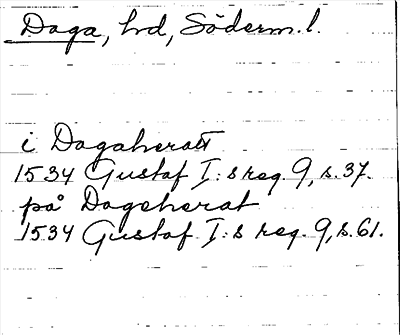 Daga, hd, Söderm. l.
i Dagaheratt
1534 Gustaf I:s reg. 9, s. 37.
på Dageherat
1534 Gustaf I:s reg. 9, s. 61.